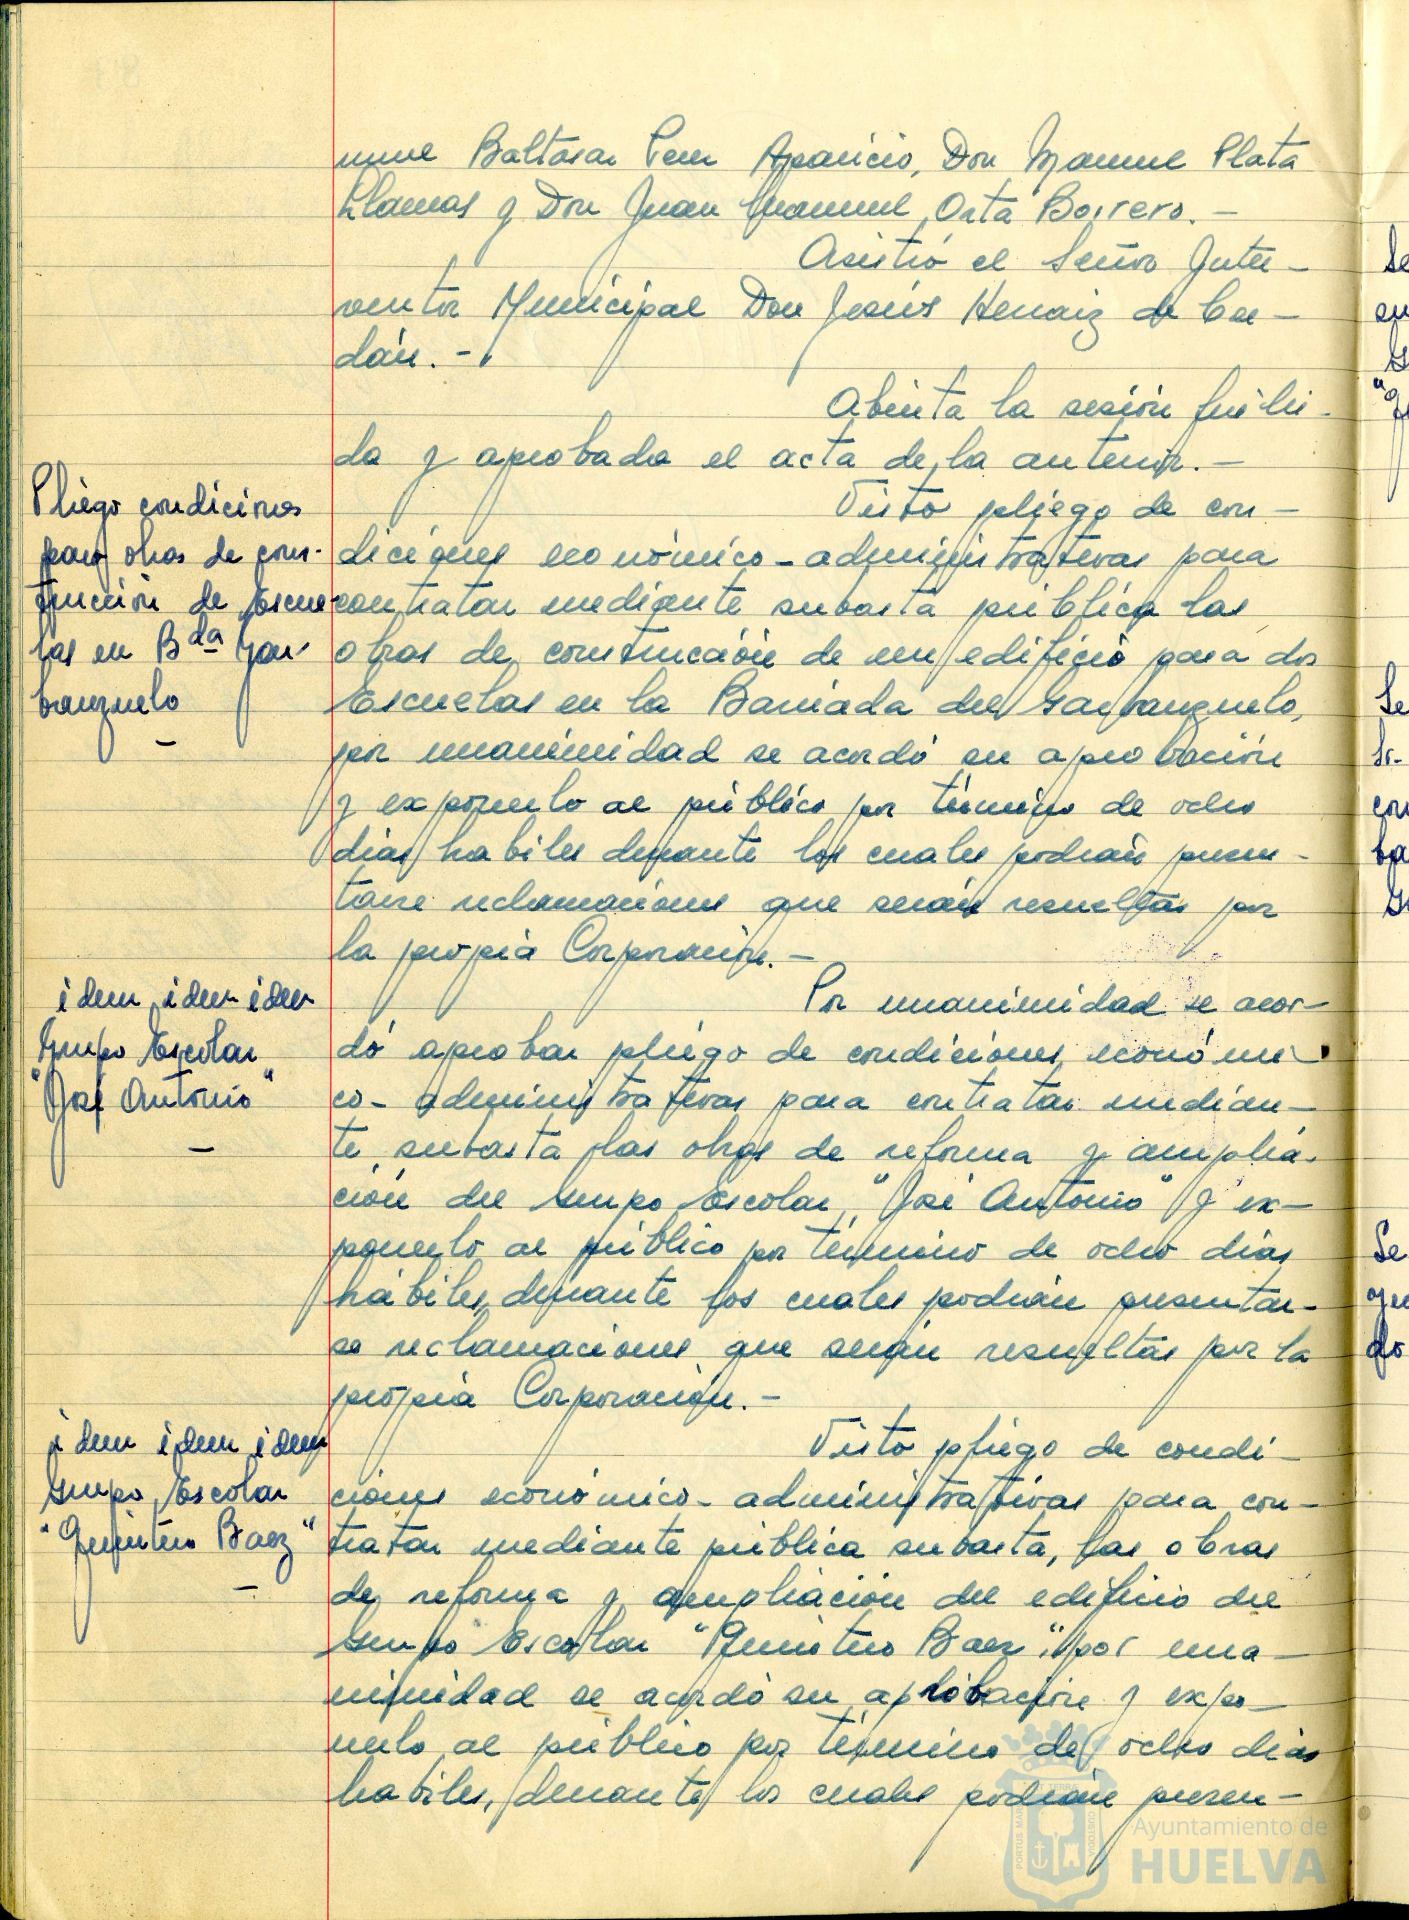 nuel Baltasar Pera Aparicio, Don Manuel Plata
Llamas y Don Juan Manuel Orta Borrero.-
Asistió el Señor Inter-
ventor Municipal Don Jesús Henaiz de
dán.-
Abierta la sesión fué lei-
da y aprobada el acta de la anterior.-
Pliego condiciones
para obras de cons-
trucción de Escue-
las en Bda Gar-
banzuelo
-
Visto pliego de con-
diciones económico-administrativas para
contratar mediante subasta pública las
obras de construcción de un edificio para dos
Escuelas en la Barriada del Garbanzuelo,
por unanimidad se acordó su aprobación
y exponerlo al público por término de ocho
días hábiles durante los cuales podrán presen-
tarse reclamaciones que serán resueltas por
la propia Corporación.-
idem idem idem
Grupo Escolar
"José Antonio"
-
Por unanimidad se acor-
dó aprobar pliego de condiciones económi-
co-administrativas para contratar median-
te subasta las obras de reforma y amplia-
ción del Grupo Escolar "José Antonio" y ex-
ponerlo al público por término de ocho días
hábiles, durante los cuales podrán presentar-
se reclamaciones que serán resueltas por la
propia Corporación.-
idem idem idem
Grupo Escolar
"Quintero Baez"
-
Visto pliego de condi-
ciones económico-administrativas para con-
tratar mediante pública subasta, las obras
de reforma y ampliación del edificio del
Grupo Escolar "Quintero Baez", por una-
nimidad se acordó su aprobación y expo-
nerlo al público por término de ocho días
hábiles, durante los cuales podrán presen-
Se
Se
Sr.
con
ba
Se
do
Ayuntamiento de
HUELVA